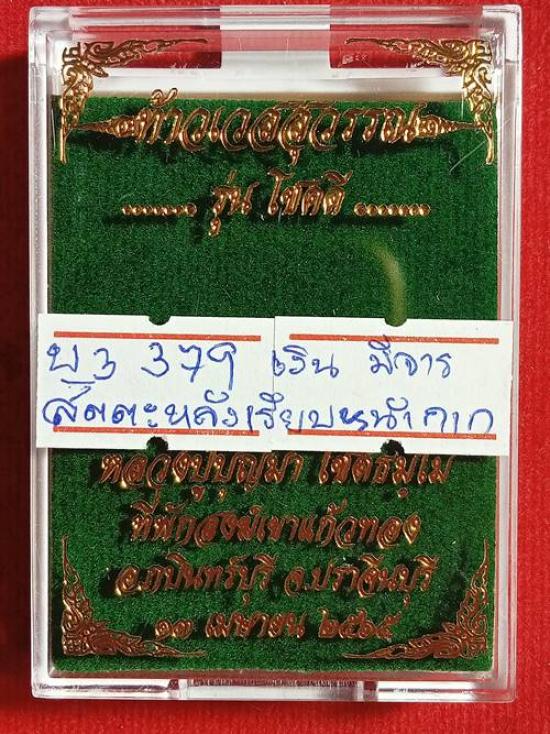 ท้าวเวสสุวรรณ
....... รุ่น โชคดี .......
บ3 379 เงิน มีจาร
สัตตะหลังเรียบหน้ากาก
หลวงปู่บุญมา โชติธมฺโม
ที่พักสงฆ์เขาแก้วทอง
อ.กบินทร์บุรี จ.ปราจีนบุรี
๑๓ เมษายน ๒๕๖๕